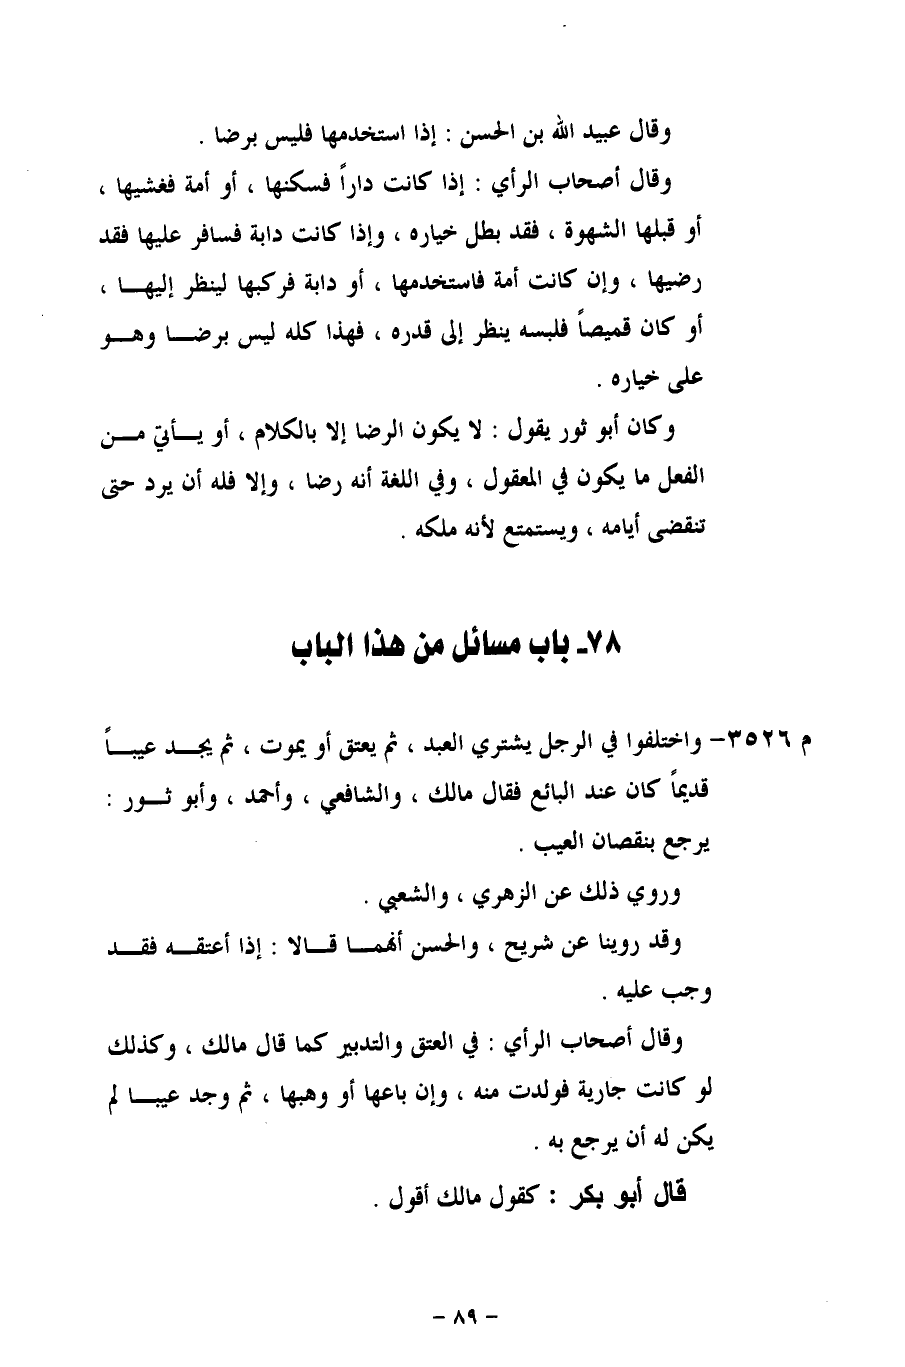 وقال عبيد الله بن الحسن : إذا استخدمها فليس برضا .
وقال أصحاب الرأي : إذا كانت داراً فسكنها ، أو أمة فغشيها ،
أو قبلها الشهوة ، فقد بطل خياره ، وإذا كانت دابة فسافر عليها فقد
رضيها ، وإن كانت أمة فاستخدمها ، أو دابة فركبها لينظر إليهـــا ،
أو كان قميصاً فلبسه ينظر إلى قدره ، فهذا كله ليس برضـــا وهـــو
على خياره .
وكان أبو ثور يقول : لا يكون الرضا إلا بالكلام ، أو يـــأتي مـــن
الفعل ما يكون في المعقول ، وفي اللغة أنه رضا ، وإلا فله أن يرد حتى
تنقضى أيامه ، ويستمتع لأنه ملكه .
٧٨ـ باب مسائل من هذا الباب
م ٣٥٢٦– واختلفوا في الرجل يشتري العبد ، ثم يعتق أو يموت ، ثم يجـــد عيبـــاً
قديماً كان عند البائع فقال مالك ، والشافعي ، وأحمد ، وأبو ثـــور :
يرجع بنقصان العيب .
وروي ذلك عن الزهري ، والشعبي .
وقد روينا عن شريح ، والحسن أنهمـــا قـــالا : إذا أعتقـــه فقـــد
وجب عليه .
وقال أصحاب الرأي : في العتق والتدبير كما قال مالك ، وكذلك
لو كانت جارية فولدت منه ، وإن باعها أو وهبها ، ثم وجد عيبـــا لم
يكن له أن يرجع به .
قال أبو بكر : كقول مالك أقول .
– ٨٩ –